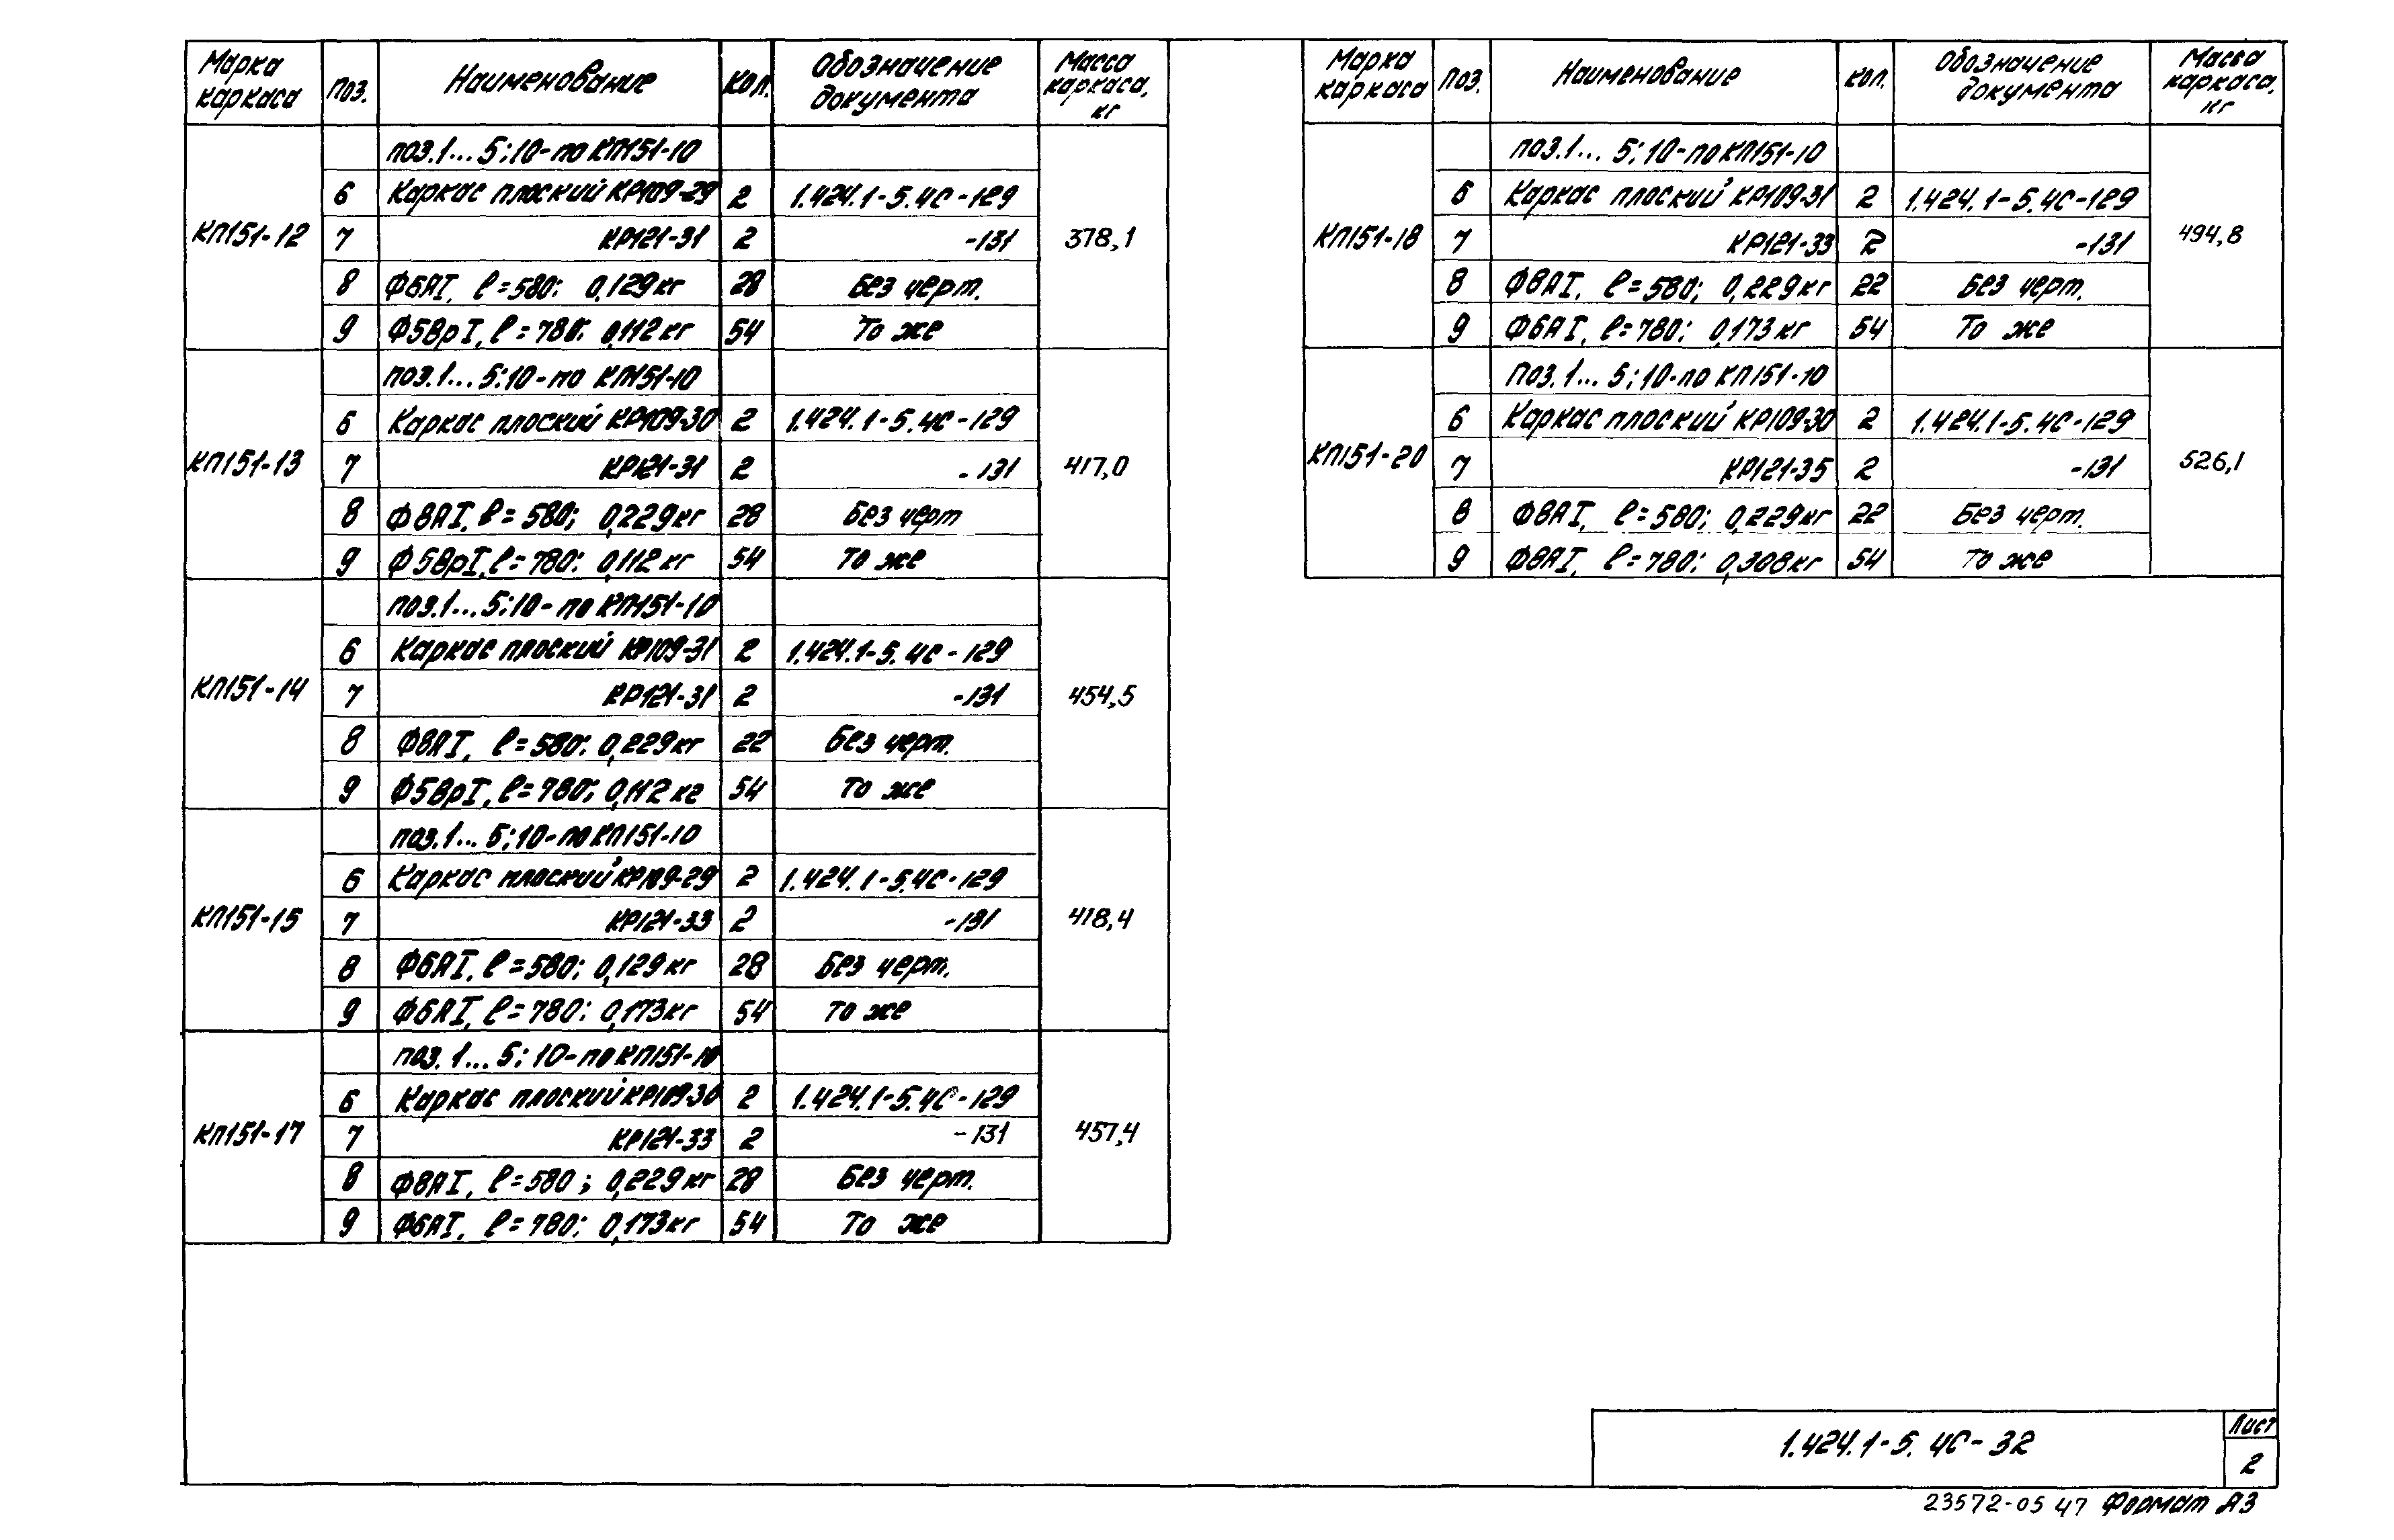 Марка каркаса Поз. Наименование Кол. Обозначение документа Масса каркаса, кг
поз.1... 5; 10-по КП151-10
6 Каркас плоский КР109-29 2 1.424.1-5.4С-129
КП151-12 7 КР121-31 2 -131 378,1
8 Ф6АI, ℓ=580; 0,129кг 28 Без черт.
9 Ф5ВрI, ℓ=780; 0,112кг 54 То же
поз.1... 5; 10-по КП151-10
6 Каркас плоский КР109-30 2 1.424.1-5.4С-129
КП151-13 7 КР121-31 2 -131 417,0
8 Ф8АI, ℓ=580; 0,229кг 28 Без черт
9 Ф5ВрI, ℓ=780; 0,112кг 54 То же
поз.1... 5; 10-по КП151-10
6 Каркас плоский КР109-31 2 1.424.1-5.4С-129
КП151-14 7 КР121-31 2 -131 454,5
8 Ф8АI, ℓ=580; 0,229кг 22 Без черт.
9 Ф5ВрI, ℓ=780; 0,112кг 54 То же
поз.1... 5; 10-по КП151-10
6 Каркас плоский КР109-29 2 1.424.1-5.4С-129
КП151-15 7 КР121-33 2 -131 418,4
8 Ф6АI, ℓ=580; 0,129кг 28 Без черт.
9 Ф6АI, ℓ=780; 0,173кг 54 То же
поз.1... 5; 10-по КП151-10
6 Каркас плоский КР109-30 2 1.424.1-5.4С-129
КП151-17 7 КР121-33 2 -131 457,4
8 Ф8АI, ℓ=580; 0,229кг 28 Без черт.
9 Ф6АI, ℓ=780; 0,173кг 54 То же
Марка каркаса Поз. Наименование Кол. Обозначение документа Масса каркаса, кг
поз.1... 5; 10-по КП151-10
6 Каркас плоский КР109-31 2 1.424.1-5.4С-129
КП151-18 7 КР121-33 2 -131 494,8
8 Ф8АI, ℓ=580; 0,229кг 22 Без черт.
9 Ф6АI, ℓ=780; 0,173кг 54 То же
Поз.1... 5; 10-по КП151-10
6 Каркас плоский КР109-30 2 1.424.1-5.4С-129
КП151-20 7 КР121-35 2 -131 526,1
8 Ф8АI, ℓ=580; 0,229кг 22 Без черт.
9 Ф8АI, ℓ=780; 0,308кг 54 То же
1.424.1-5.4С-32
Лист
2
23572-05 47 Формат А3